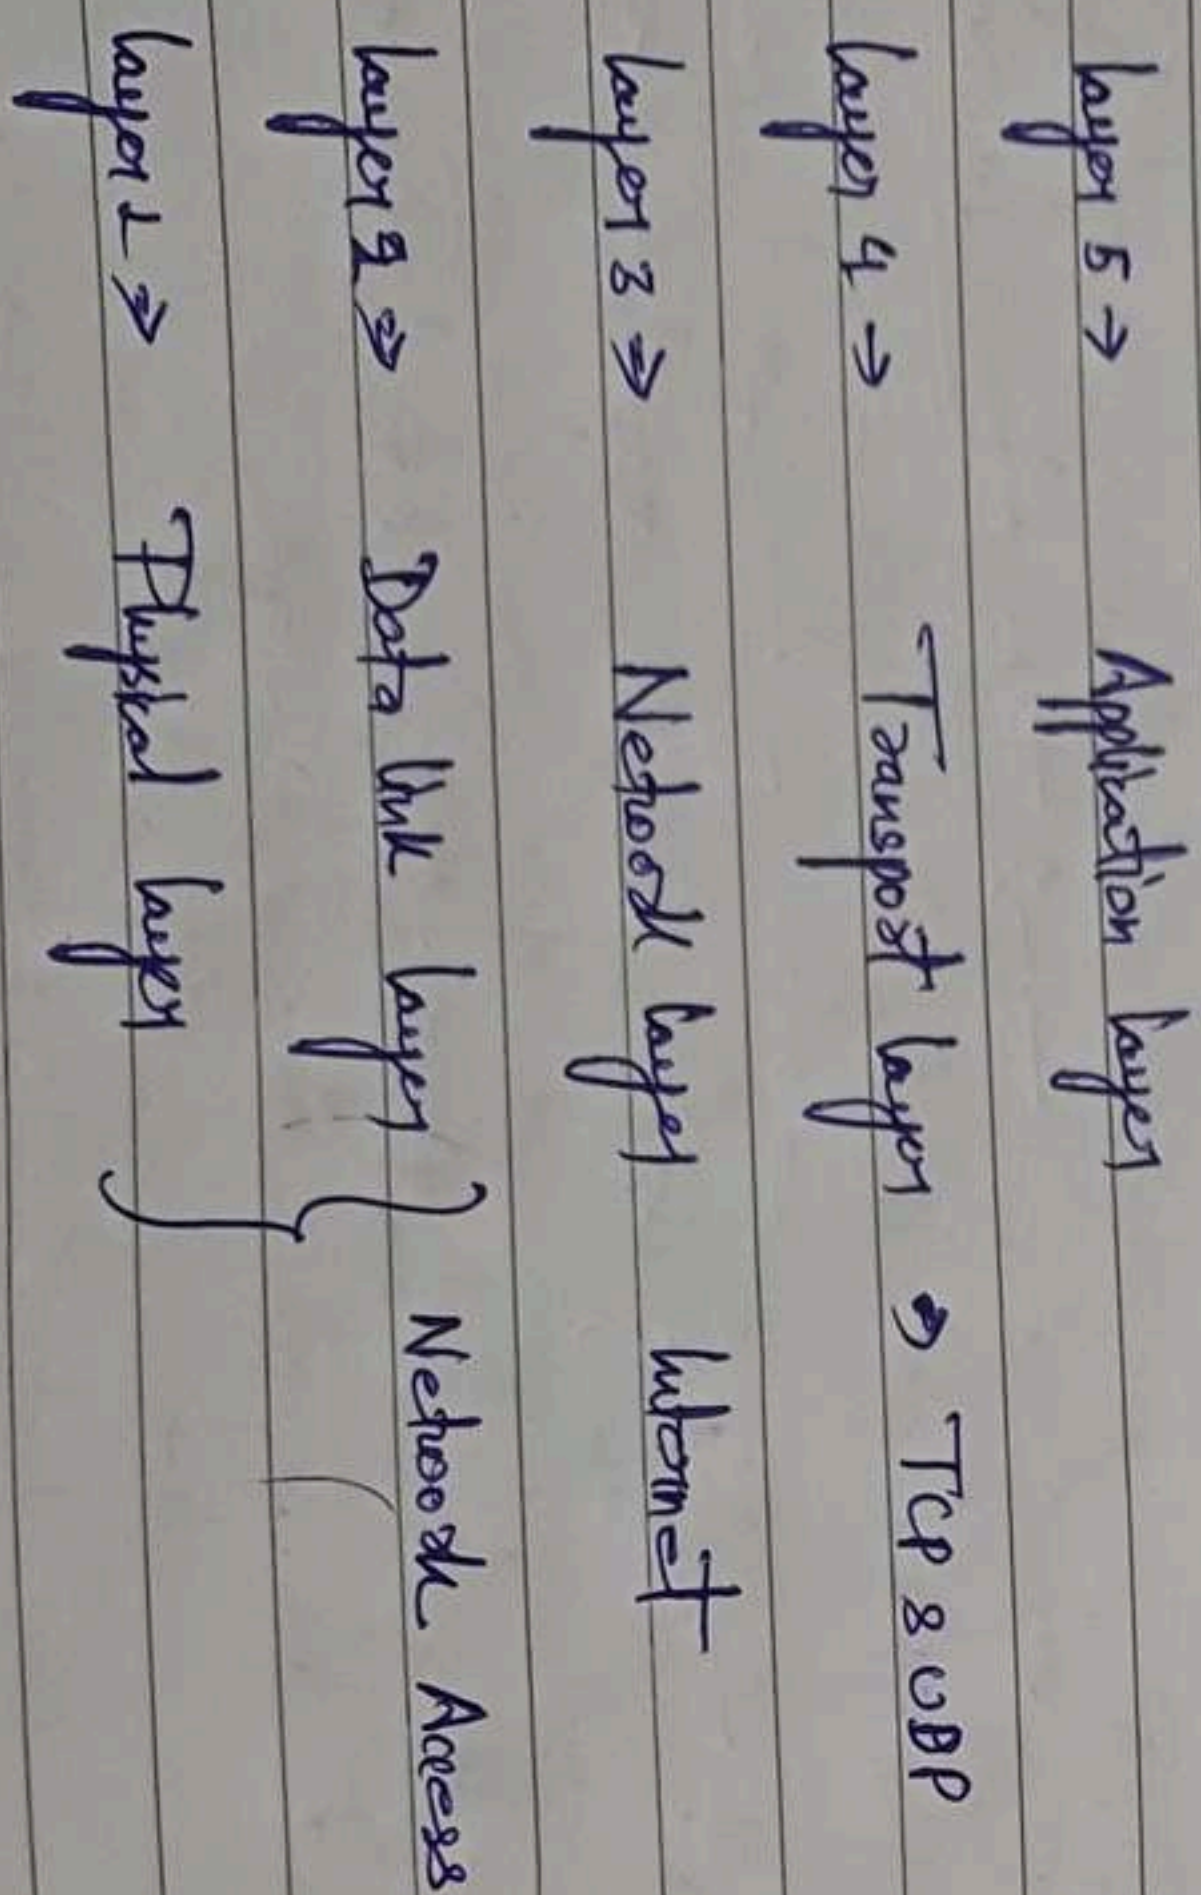 Layer 5 → Application Layer
Layer 4 → Transport Layer → TCP & UDP
Layer 3 ⇒ Network Layer Internet
Layer 2 ⇒ Data link Layer } Network Access
Layer 1 ⇒ Physical Layer